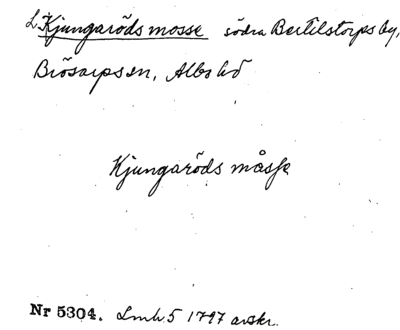 L. Kjungaröds mosse södra Bertilstorps by,
Brösarps sn, Albo hd
Kjungaröds måsse
Nr 5304. Lmh. 5 1797 avskr.